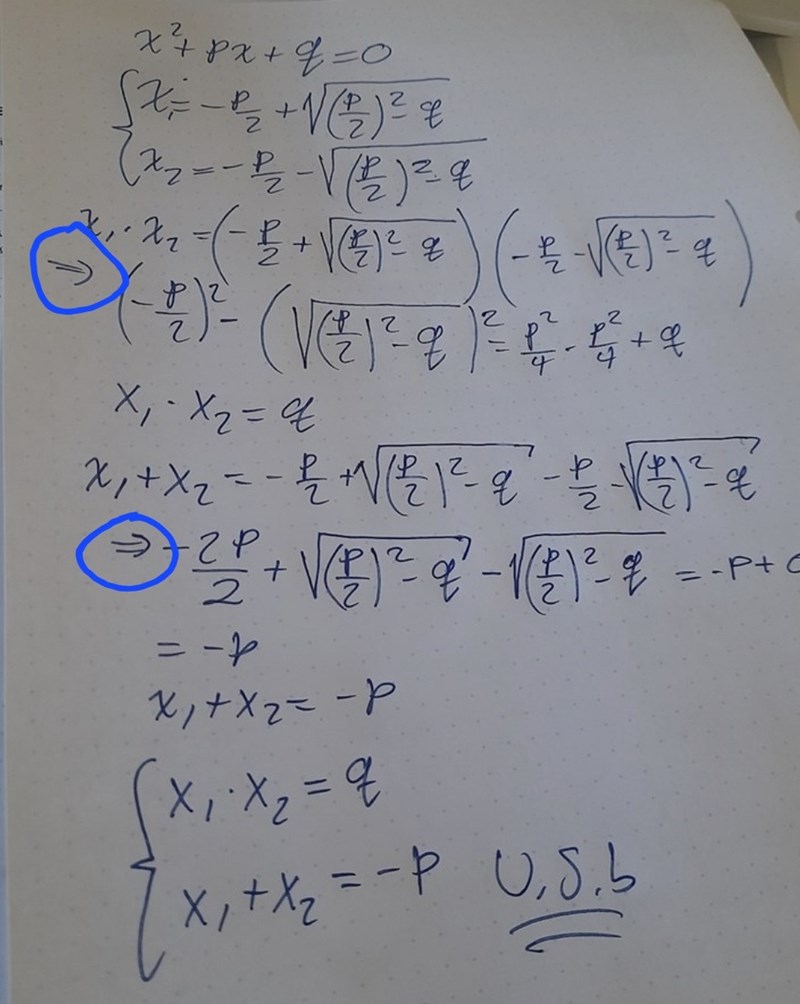 x² + px + q = 0
x₁ = -p/2 + √((p/2)² - q)
x₂ = -p/2 - √((p/2)² - q)
x₁ · x₂ = (-p/2 + √((p/2)² - q)) (-p/2 - √((p/2)² - q))
⇒ (-p/2)² - (√((p/2)² - q))² = p²/4 - p²/4 + q
x₁ · x₂ = q
x₁ + x₂ = -p/2 + √((p/2)² - q) - p/2 - √((p/2)² - q)
⇒ -2p/2 + √((p/2)² - q) - √((p/2)² - q) = -p + 0
= -p
x₁ + x₂ = -p
x₁ · x₂ = q
x₁ + x₂ = -p U.S.b